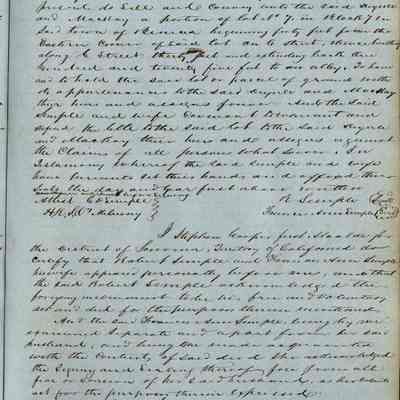 and Mackay a portion of Lot No 7. in Block 7 in
said town of Benicia beginning forty feet from the
Eastern Corner of said lot on C street, thence
along C Street thirty feet and extending back one
hundred and twenty five feet to an alley. To have
and to hold the said lot or parcel of ground with
its appertenances to the said and Mackay
their heirs and assigns forever And the said
Semple and wife Covenant to warrant and
defend the title to the said lot to the said
and Mackay their heirs and assigns against
the Claims of all persons whatsoever. In
Testimony whereof the said Semple and wife
have hereunto set their hands and affixed their
Seals the day and year first above written
Attest C E Semple R. Semple Seal
Frances Ann Semple Seal
I Stephen Cooper first Alcalde for
the District of Sonoma, Territory of California do
Certify that Robert Semple and Frances Ann Semple
his wife appeared personally before me, and that
the said Robert Semple acknowledged the
foregoing instrument to be his free and voluntary
act and deed for the purposes therein mentioned.
And the said Frances Ann Semple, being by me
examined separate and apart from her said
husband, and being made acquainted
with the Contents of said deed She acknowledged
the Signing and Sealing thereof free from all
fear or Coercion of her Said husband, as her
act for the purposes therein expressed.